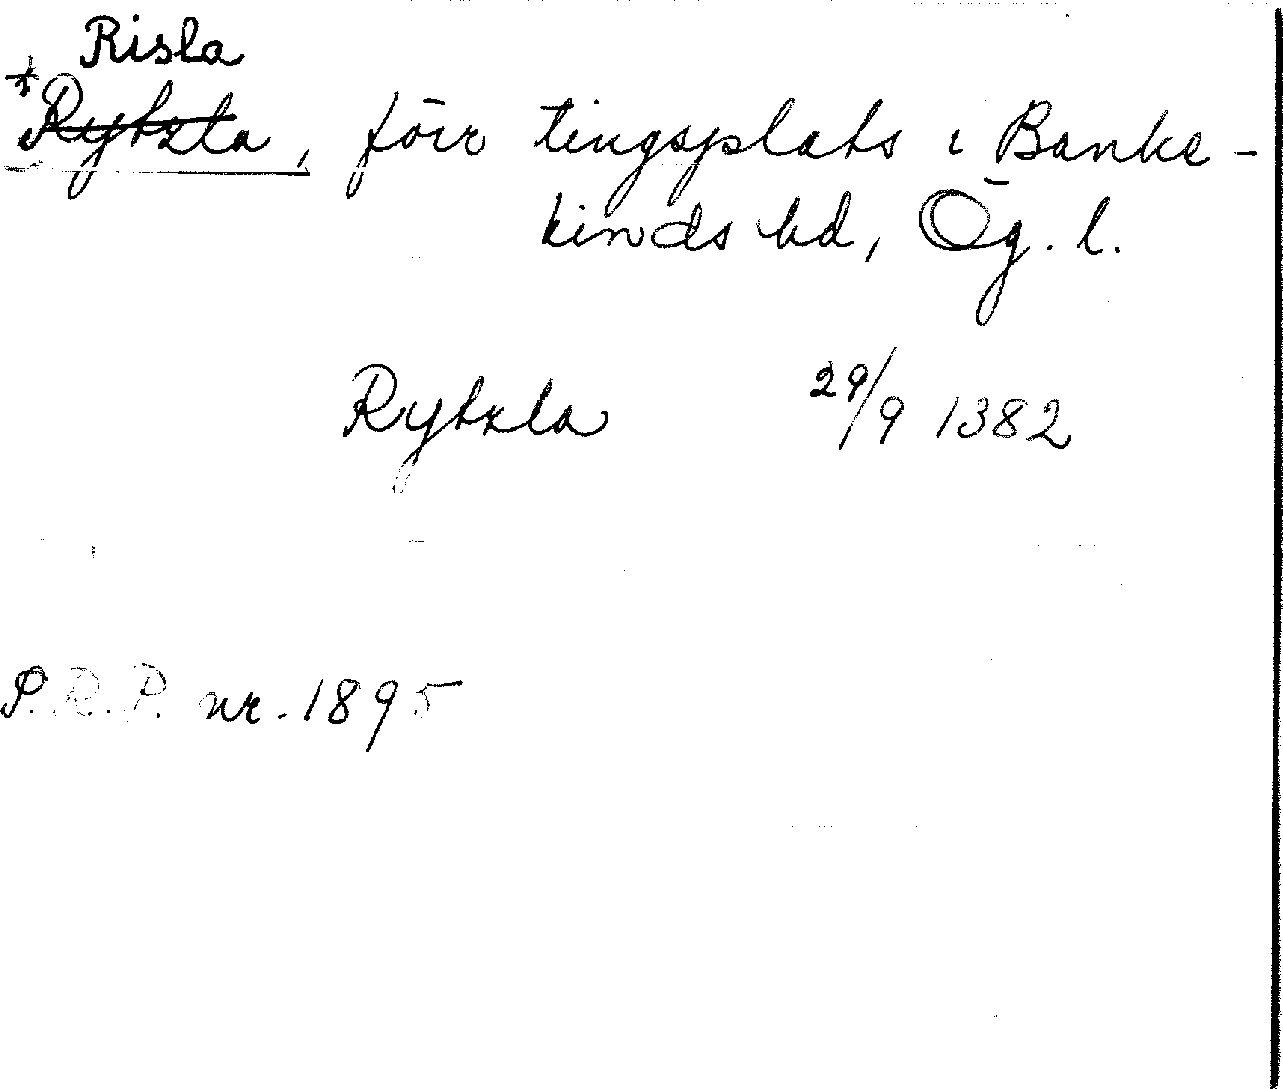 Risla
*Rytzla, förr tingsplats i Banke-
kinds hd, Ög. l.
Rytzla 29/9 1382
P.R.P. nr. 1895